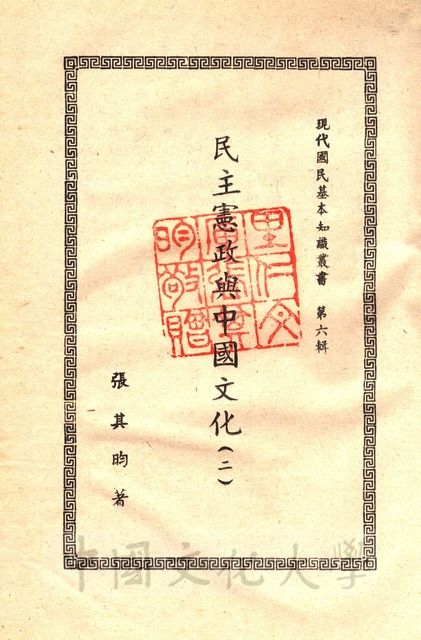 現代國民基本知識叢書 第六輯
民主憲政與中國文化(二)
張其昀著
中國文化大學